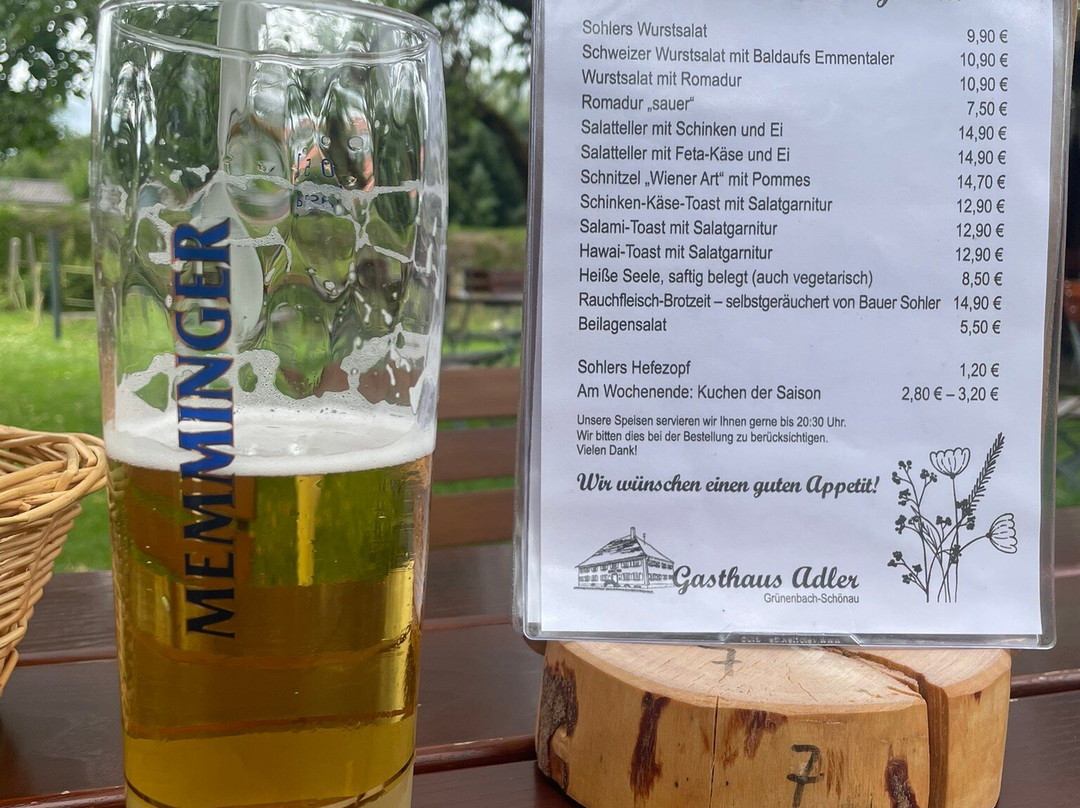 MEMMINGER
Sohlers Wurstsalat 9,90 €
Schweizer Wurstsalat mit Baldaufs Emmentaler 10,90 €
Wurstsalat mit Romadur 10,90 €
Romadur „sauer“ 7,50 €
Salatteller mit Schinken und Ei 14,90 €
Salatteller mit Feta-Käse und Ei 14,90 €
Schnitzel „Wiener Art“ mit Pommes 14,70 €
Schinken-Käse-Toast mit Salatgarnitur 12,90 €
Salami-Toast mit Salatgarnitur 12,90 €
Hawai-Toast mit Salatgarnitur 12,90 €
Heiße Seele, saftig belegt (auch vegetarisch) 8,50 €
Rauchfleisch-Brotzeit – selbstgeräuchert von Bauer Sohler 14,90 €
Beilagensalat 5,50 €
Sohlers Hefezopf 1,20 €
Am Wochenende: Kuchen der Saison 2,80 € – 3,20 €
Unsere Speisen servieren wir Ihnen gerne bis 20:30 Uhr.
Wir bitten dies bei der Bestellung zu berücksichtigen.
Vielen Dank!
Wir wünschen einen guten Appetit!
Gasthaus Adler
Grünenbach-Schönau
7
7